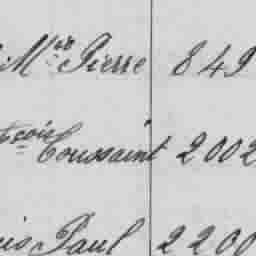 Mʳ Pierre 849
çois Toussaint 2002
uis Paul 2200